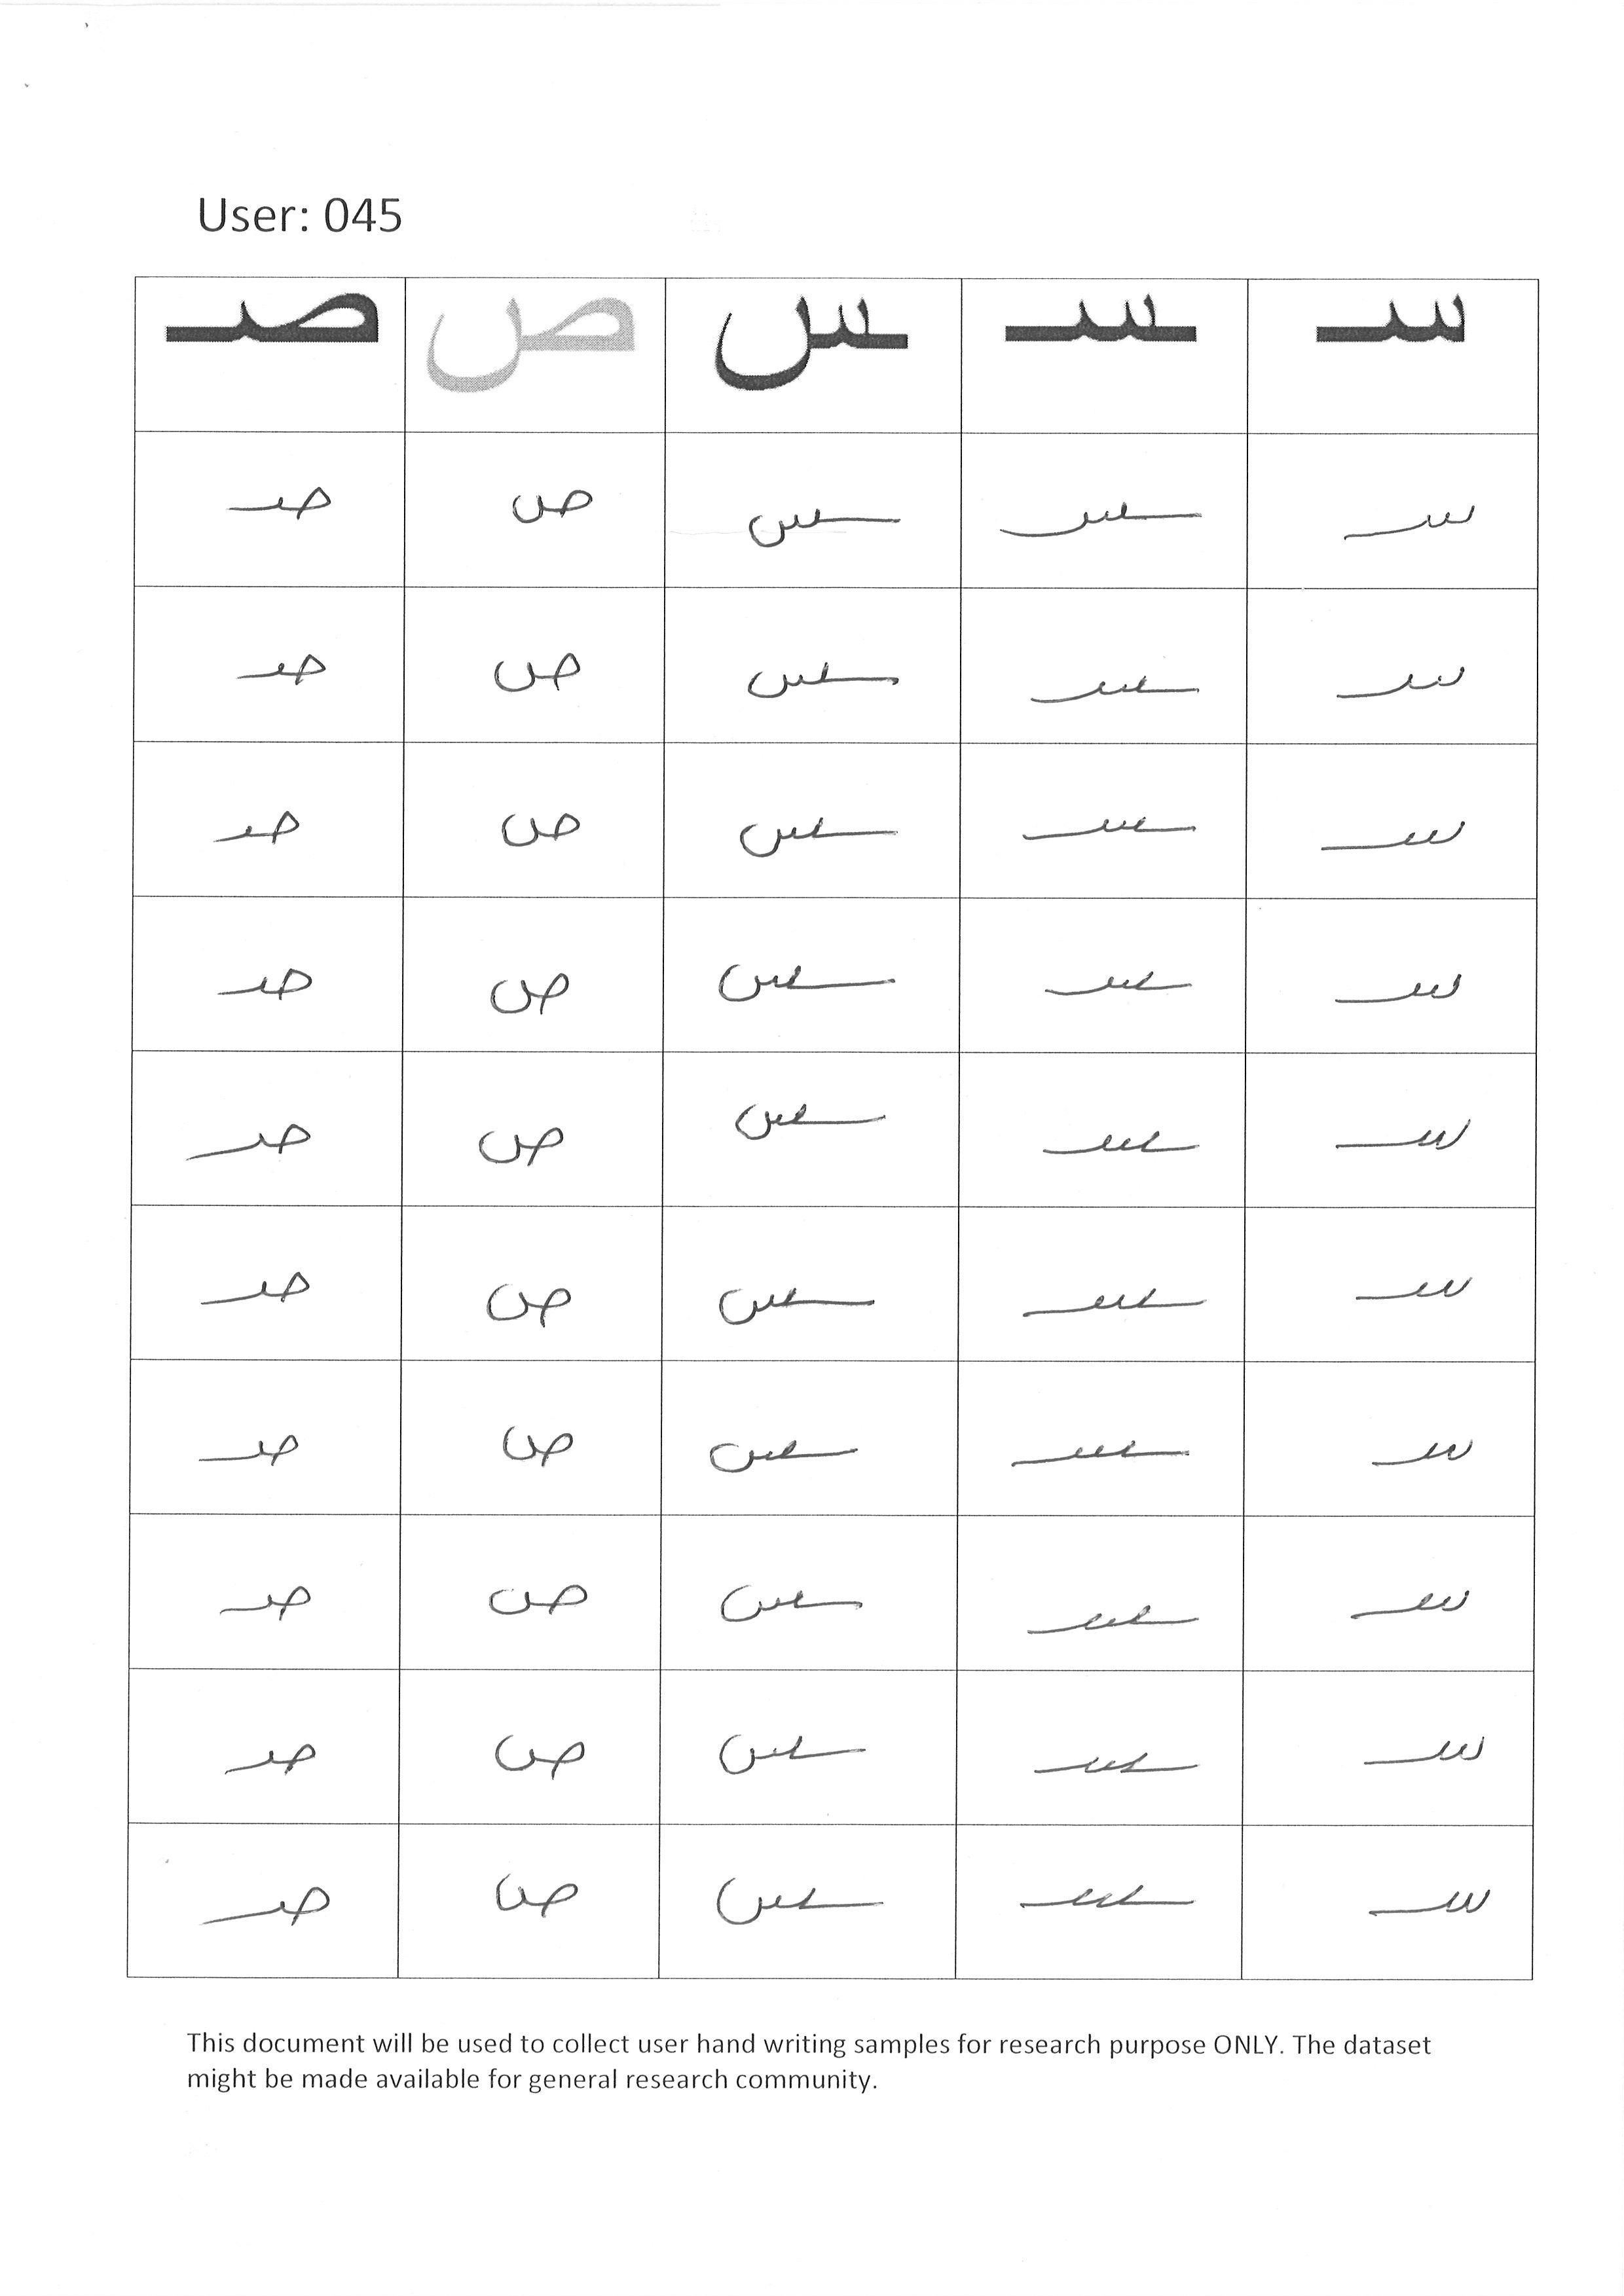 User: 045
سـ ـسـ ـس ص صـ
سـ ـسـ ـس ص صـ
سـ ـسـ ـس ص صـ
سـ ـسـ ـس ص صـ
سـ ـسـ ـس ص صـ
سـ ـسـ ـس ص صـ
سـ ـسـ ـس ص صـ
سـ ـسـ ـس ص صـ
سـ ـسـ ـس ص صـ
سـ ـسـ ـس ص صـ
سـ ـسـ ـس ص صـ
This document will be used to collect user hand writing samples for research purpose ONLY. The dataset
might be made available for general research community.